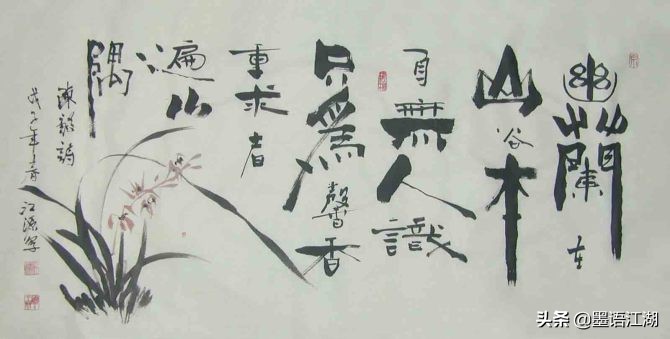 幽蘭在
山谷本
自無人識
只爲馨香
重求者
遍山
隅
陳毅詩
戊子年春 江源寫
头条 @墨语江湖